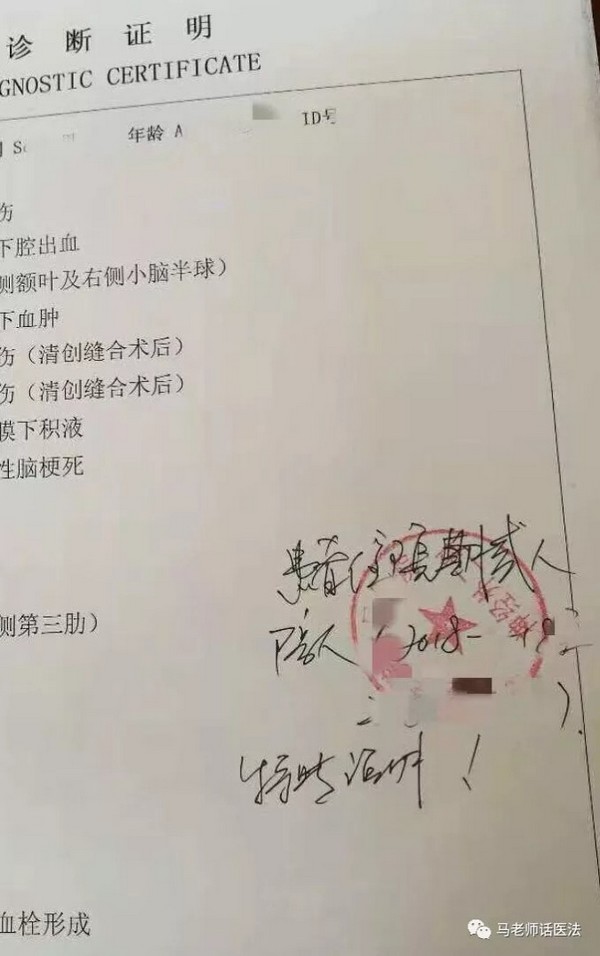 诊断证明
GNOSTIC CERTIFICATE
年龄 A
ID号
伤
下腔出血
侧额叶及右侧小脑半球）
下血肿
伤（清创缝合术后）
伤（清创缝合术后）
膜下积液
性脑梗死
患者住院期间贰人
陪人（2018-
侧第三肋）
）.
特此证明！
血栓形成
马老师话医法